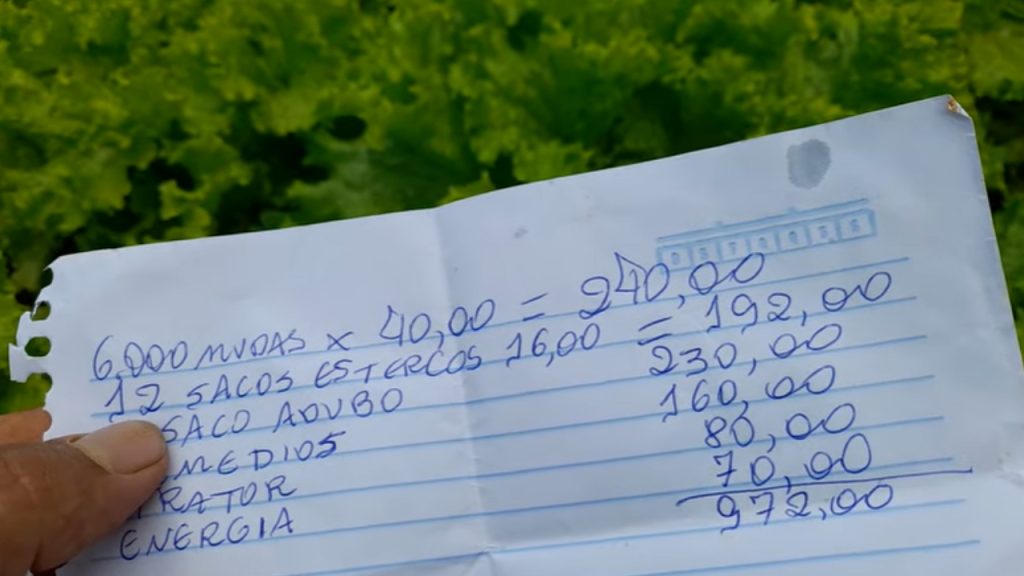 6.000 MUDAS x 40,00 = 240,00
12 SACOS ESTERCOS 16,00 = 192,00
SACO ADUBO 230,00
MEDIOS 160,00
TRATOR 80,00
ENERGIA 70,00
972,00